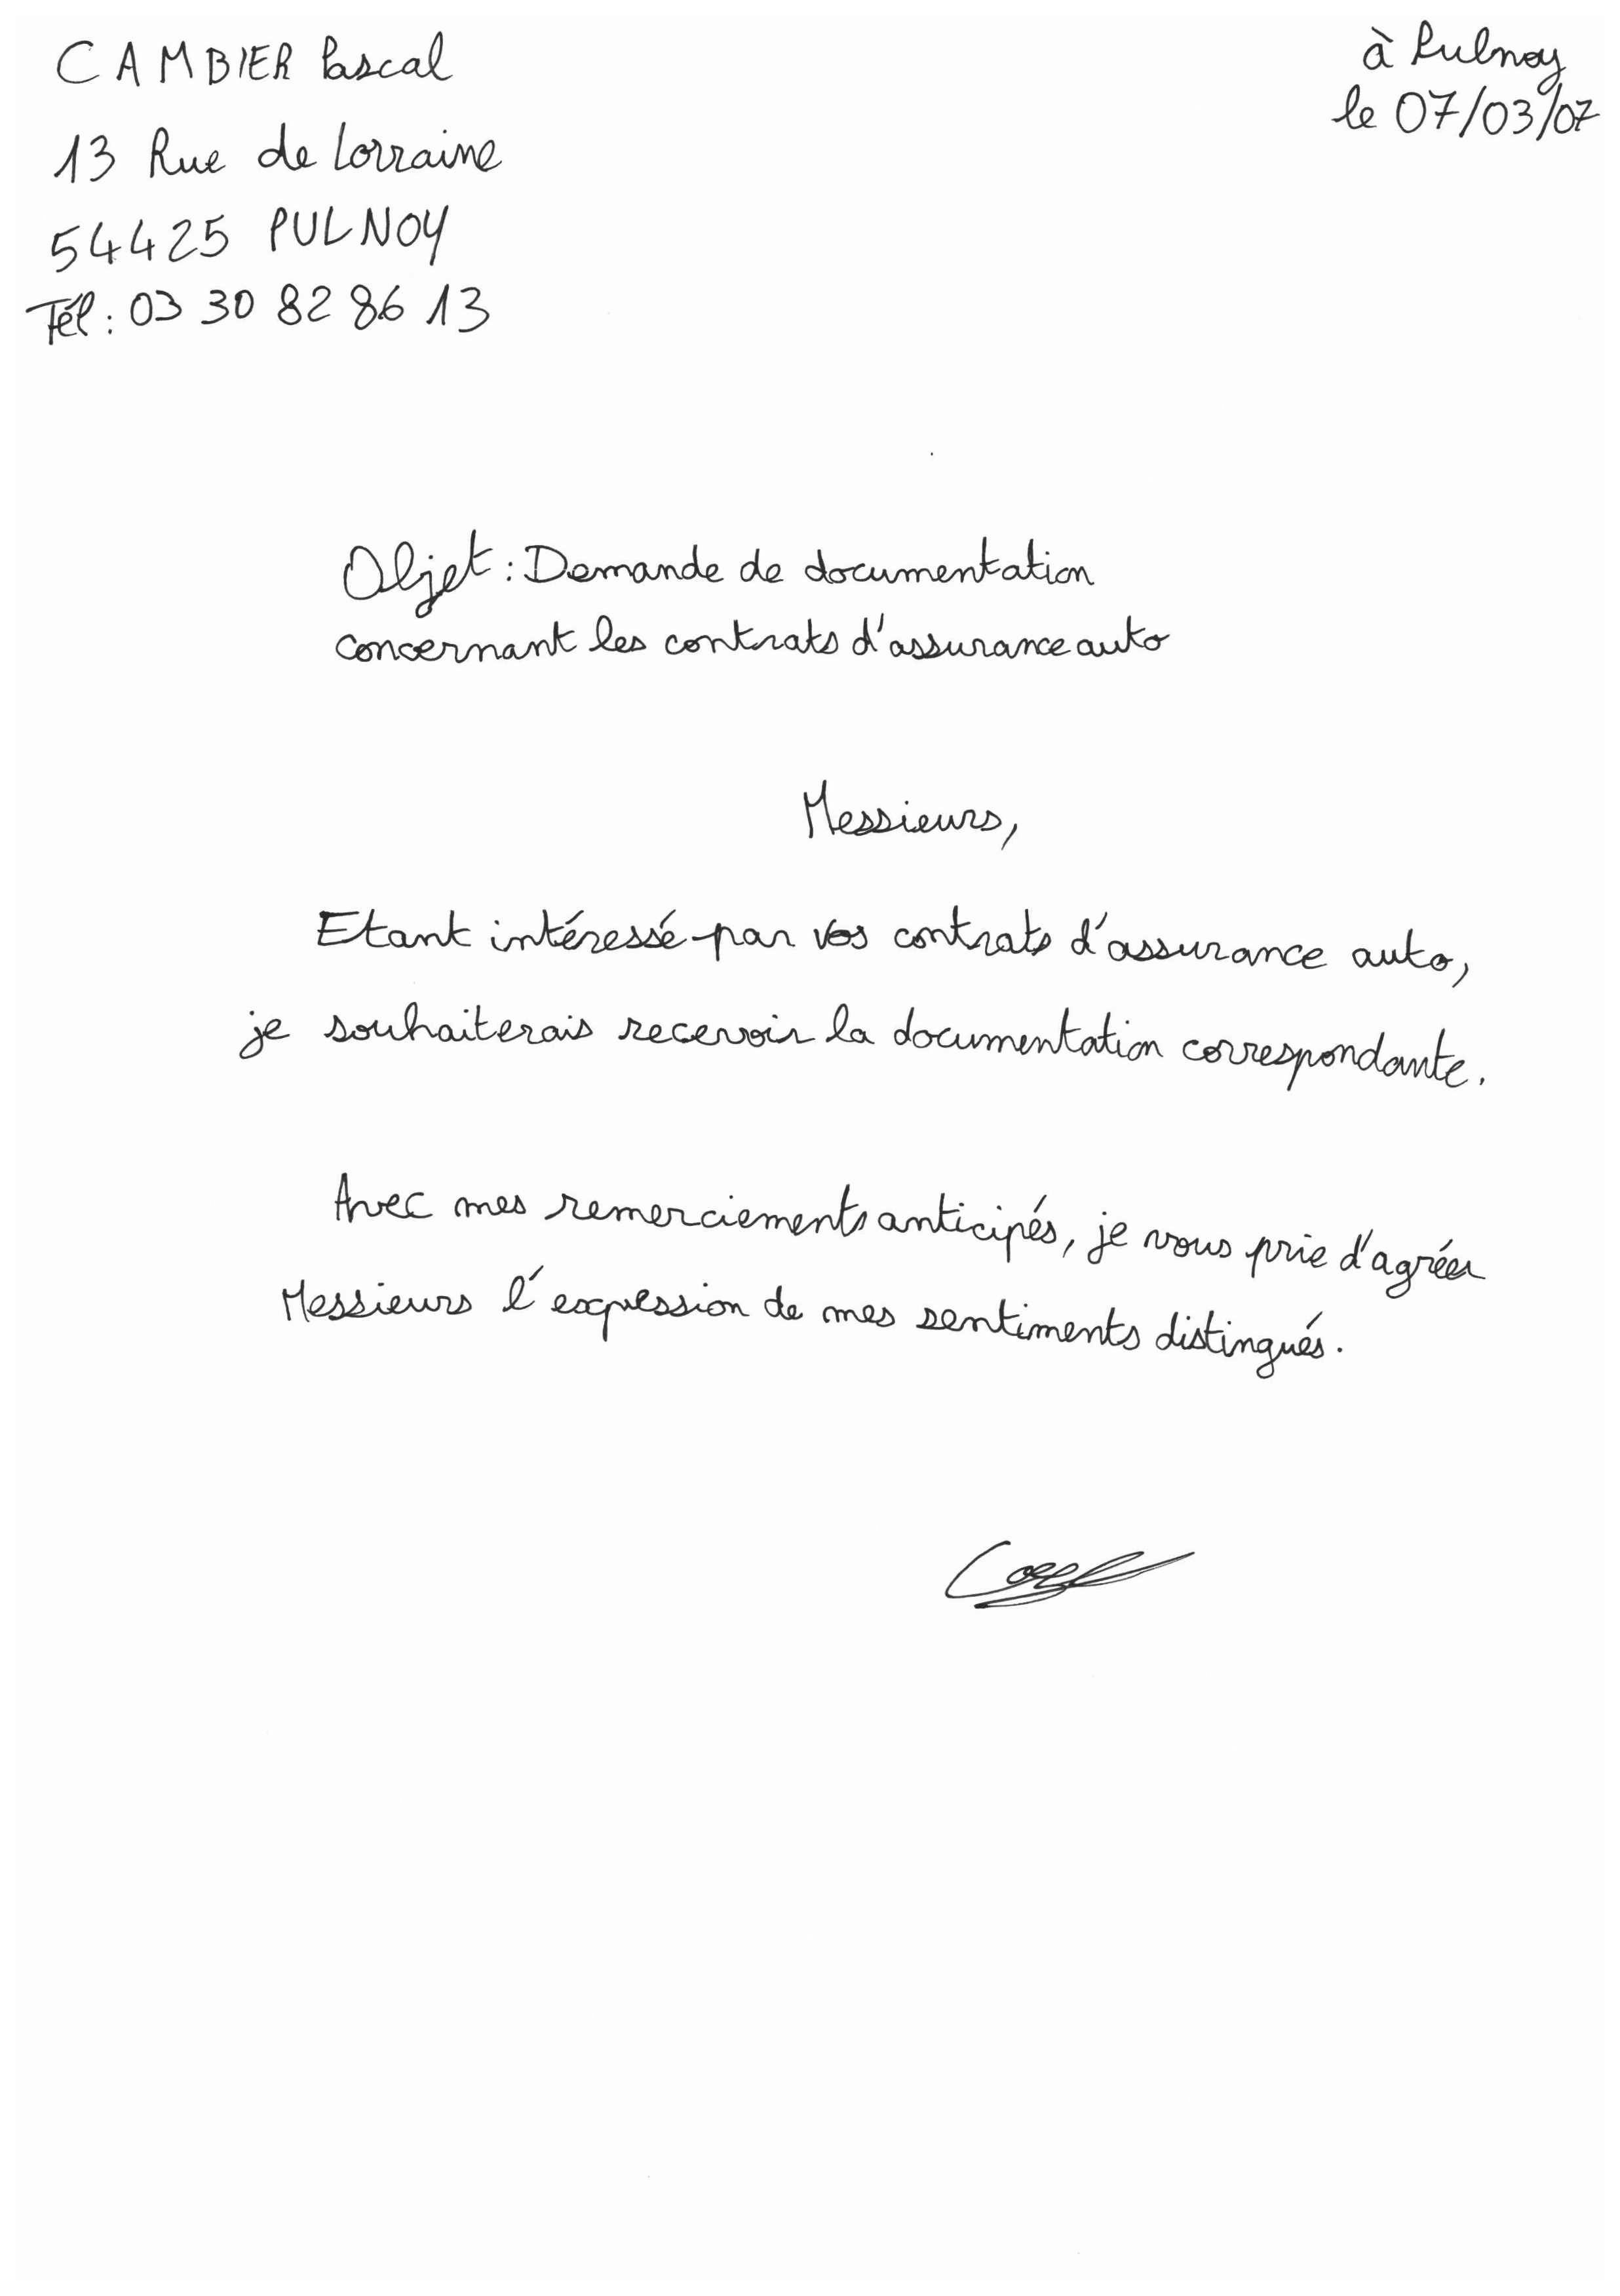 CAMBIER Pascal
13 Rue de Lorraine
54425 PULNOY
Tél : 03 30 82 86 13
à Pulnoy
le 07/03/07
Objet : Demande de documentation
concernant les contrats d'assurance auto
Messieurs,
Etant intéressé par vos contrats d'assurance auto,
je souhaiterais recevoir la documentation correspondante.
Avec mes remerciements anticipés, je vous prie d'agréer
Messieurs l'expression de mes sentiments distingués.